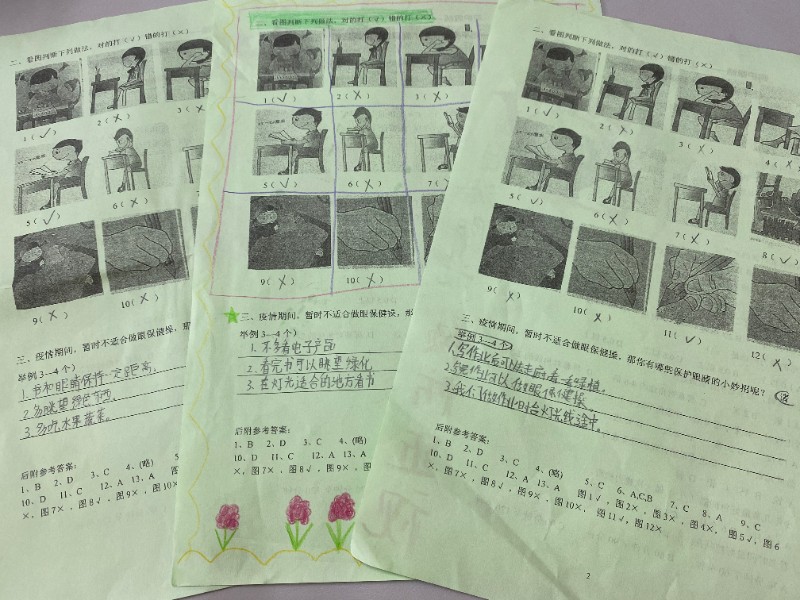 二、看图判断下列做法，对的打（√）错的打（×）
1（√） 2（×） 3（×
5（√） 6（×）
9（×） 10（×）
三、疫情期间，暂时不适合做眼保健操，那
举例 3—4 个）
1.书和眼睛保持一定距离.
2.多眺望绿色东西.
3.多吃水果蔬菜.
后附参考答案：
1、B 2、D 3、C 4、(略)
10、D 11、C 12、A 13、A
×，图7×，图8√，图9×，图10×
二、看图判断下列做法，对的打（√）错的打（×）
1（√） 2（×） 3（×）
5（√） 6（×） 7（×
9（×） 10（×）
三、疫情期间，暂时不适合做眼保健操，
举例 3—4 个）
1.不多看电子产品
2.看完书可以眺望绿化
3.在灯光适合的地方看书
后附参考答案：
1、B 2、D 3、C 4、(略)
10、D 11、C 12、A 13、A
×，图7×，图8√，图9×，图
二、看图判断下列做法，对的打（√）错的打（×）
1（√） 2（×） 3（×） 4（×
5（√） 6（×） 7（×） 8（√
9（×） 10（×） 11（√） 12（×
三、疫情期间，暂时不适合做眼保健操，那你有哪些保护眼睛的小妙招呢？
举例 3—4 个）
1.写作业后可以走后看一看绿植.
2.写完作业可以做眼保健操.
3.我们做作业时台灯光线适中.
后附参考答案：
1、B 2、D 3、C 4、(略) 5、C 6、A,C,B 7、C 8、A 9、C
10、D 11、C 12、A 13、A 图1√，图2×，图3×，图4×，图5√，图6
×，图7×，图8√，图9×，图10×，图11√，图12×
2